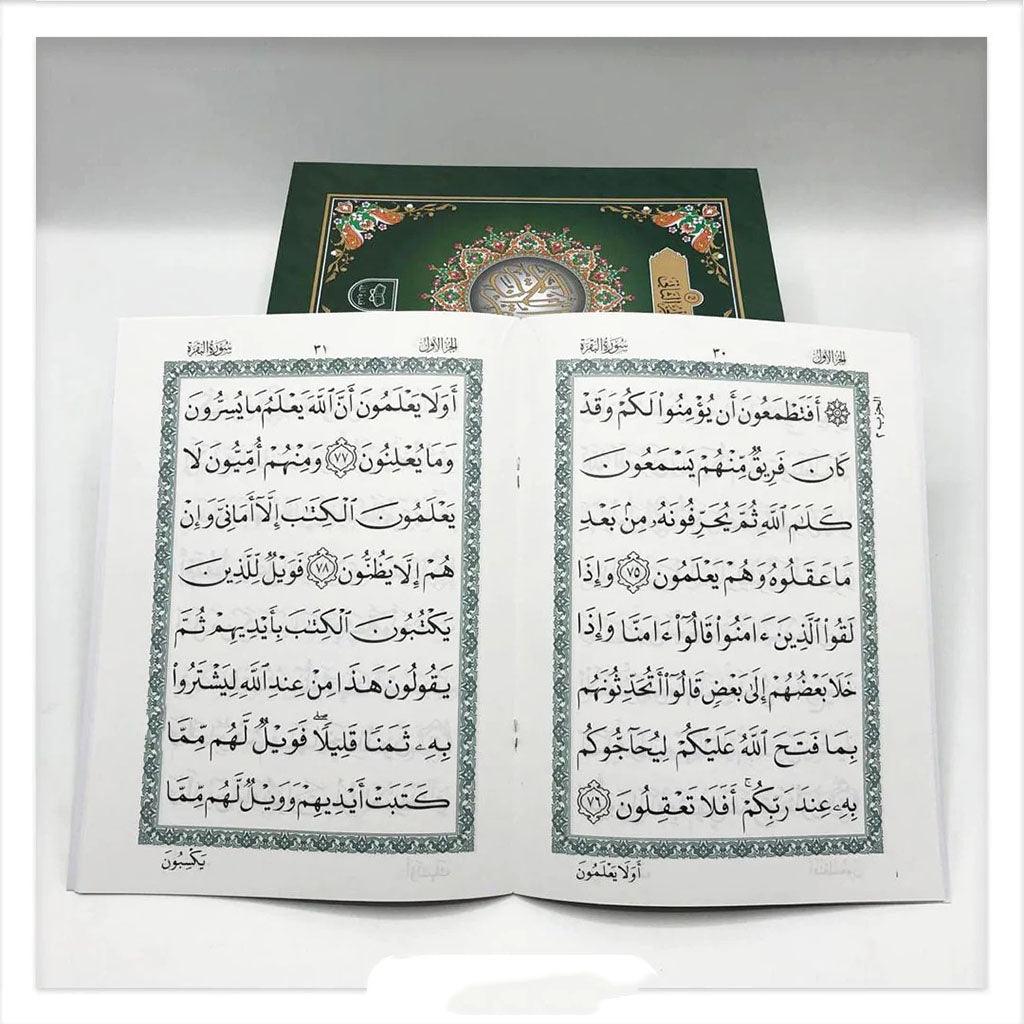 الجزء الأول
٣٠
سورة البقرة
الحزب ٢
۞ أَفَتَطْمَعُونَ أَن يُؤْمِنُوا۟ لَكُمْ وَقَدْ
كَانَ فَرِيقٌ مِّنْهُمْ يَسْمَعُونَ
كَلَـٰمَ ٱللَّهِ ثُمَّ يُحَرِّفُونَهُۥ مِنۢ بَعْدِ
مَا عَقَلُوهُ وَهُمْ يَعْلَمُونَ ٧٥ وَإِذَا
لَقُوا۟ ٱلَّذِينَ ءَامَنُوا۟ قَالُوٓا۟ ءَامَنَّا وَإِذَا
خَلَا بَعْضُهُمْ إِلَىٰ بَعْضٍ قَالُوٓا۟ أَتُحَدِّثُونَهُم
بِمَا فَتَحَ ٱللَّهُ عَلَيْكُمْ لِيُحَآجُّوكُم
بِهِۦ عِندَ رَبِّكُمْ ۚ أَفَلَا تَعْقِلُونَ ٧٦
أَوَلَا يَعْلَمُونَ
١
الجزء الأول
٣١
سورة البقرة
أَوَلَا يَعْلَمُونَ أَنَّ ٱللَّهَ يَعْلَمُ مَا يُسِرُّونَ
وَمَا يُعْلِنُونَ ٧٧ وَمِنْهُمْ أُمِّيُّونَ لَا
يَعْلَمُونَ ٱلْكِتَـٰبَ إِلَّآ أَمَانِىَّ وَإِنْ
هُمْ إِلَّا يَظُنُّونَ ٧٨ فَوَيْلٌ لِّلَّذِينَ
يَكْتُبُونَ ٱلْكِتَـٰبَ بِأَيْدِيهِمْ ثُمَّ
يَقُولُونَ هَـٰذَا مِنْ عِندِ ٱللَّهِ لِيَشْتَرُوا۟
بِهِۦ ثَمَنًا قَلِيلًا ۖ فَوَيْلٌ لَّهُم مِّمَّا
كَتَبَتْ أَيْدِيهِمْ وَوَيْلٌ لَّهُم مِّمَّا
يَكْسِبُونَ